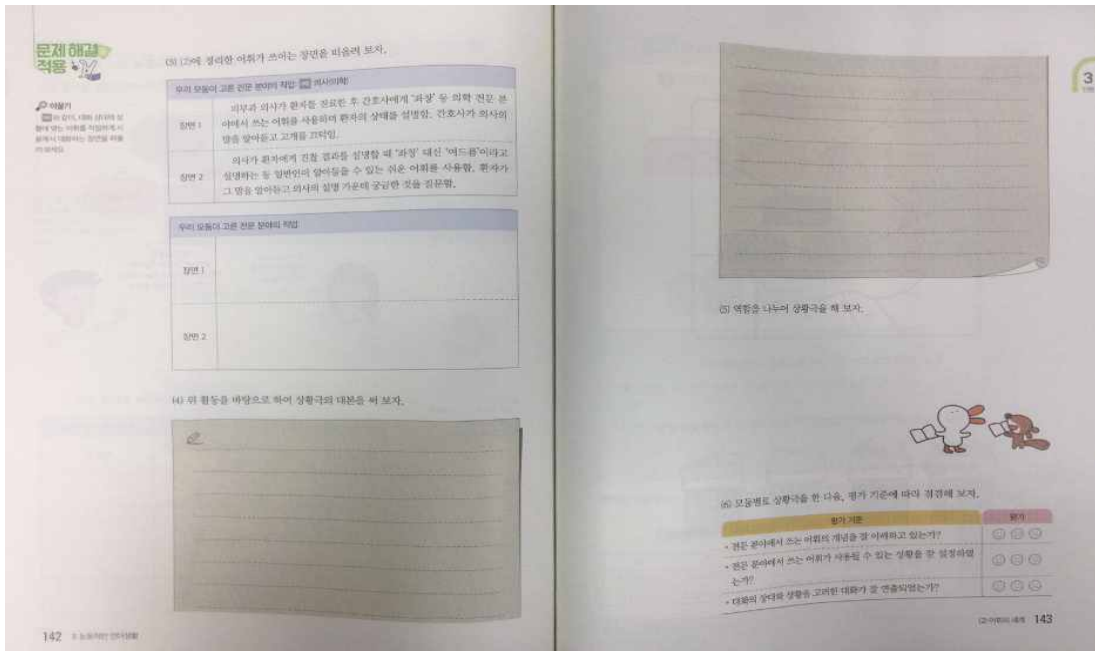 문제 해결
적용
(3) (2)에 정리한 어휘가 쓰이는 장면을 떠올려 보자.
우리 모둠이 고른 전문 분야의 직업: 의사(의학)
장면 1
피부과 의사가 환자를 진료한 후 간호사에게 '좌창' 등 의학 전문 분
야에서 쓰는 어휘를 사용하여 환자의 상태를 설명함. 간호사가 의사의
말을 알아듣고 고개를 끄덕임.
장면 2
의사가 환자에게 진찰 결과를 설명할 때 '좌창' 대신 '여드름'이라고
설명하는 등 일반인이 알아들을 수 있는 쉬운 어휘를 사용함. 환자가
그 말을 알아듣고 의사의 설명 가운데 궁금한 것을 질문함.
우리 모둠이 고른 전문 분야의 직업:
장면 1
장면 2
(4) 위 활동을 바탕으로 하여 상황극의 대본을 써 보자.
142
3
(5) 역할을 나누어 상황극을 해 보자.
(6) 모둠별로 상황극을 한 다음, 평가 기준에 따라 점검해 보자.
평가 기준
평가
• 전문 분야에서 쓰는 어휘의 개념을 잘 이해하고 있는가?
• 전문 분야에서 쓰는 어휘가 사용될 수 있는 상황을 잘 설정하였
는가?
• 대화의 상대와 상황을 고려한 대화가 잘 연출되었는가?
(2) 어휘의 세계 143